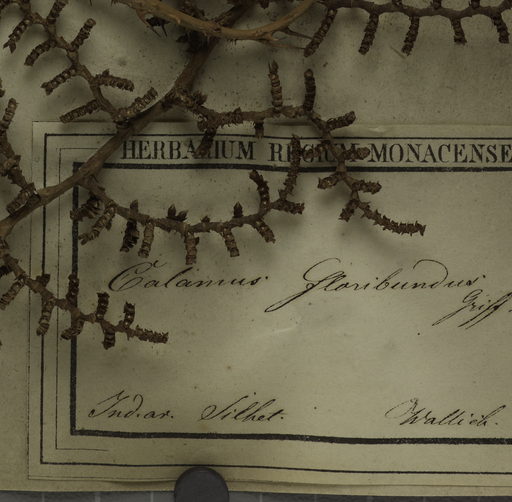 HERBARIUM REGIUM MONACENSE
Calamus floribundus
Griff.
Ind. or. Silhet. Wallich.